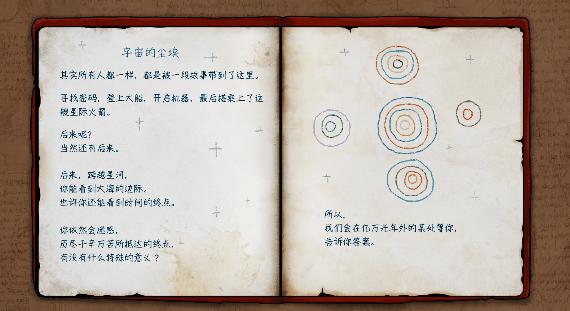 宇宙的尘埃
其实所有人都一样，都是被一段故事带到了这里。
寻找密码，登上大船，开启机器，最后搭乘上了这
艘星际火箭。
后来呢？
当然还有后来。
后来，跨越星河，
你能看到大海的边际，
也许你还能看到时间的终点。
你依然会迷惑，
历尽千辛万苦所抵达的终点，
有没有什么特殊的意义？
所以，
我们会在亿万光年外的某处等你，
告诉你答案。